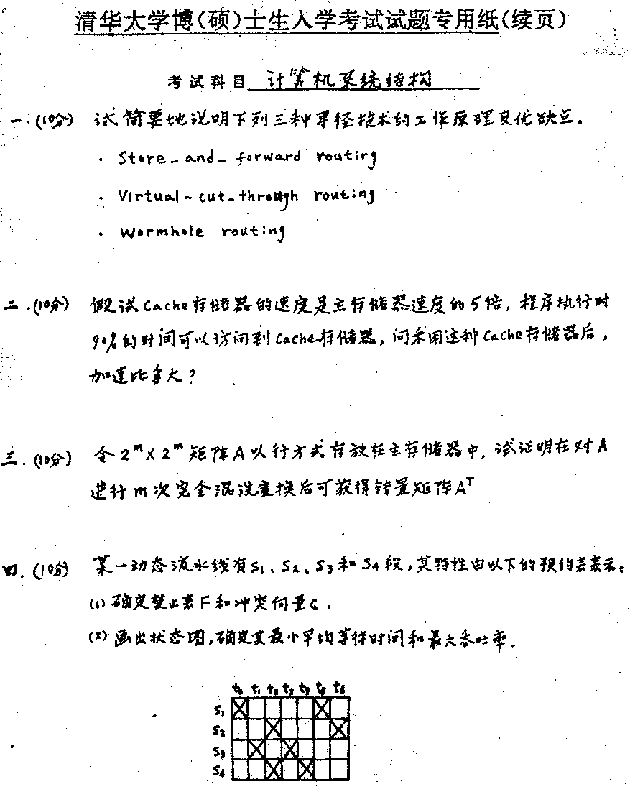 清华大学博(硕)士生入学考试试题专用纸(续页)
考试科目 计算机系统结构
一.(10分) 试简要地说明下列三种寻径技术的工作原理及优缺点.
· Store-and-forward routing
· Virtual-cut-through routing
· Wormhole routing
二.(10分) 假设Cache存储器的速度是主存储器速度的5倍,程序执行时
90%的时间可以访问到Cache存储器,问采用这种Cache存储器后,
加速比多大?
三.(10分) 令2^m×2^m矩阵A以行方式存放在主存储器中,试证明在对A
进行m次完全混洗变换后可获得转置矩阵A^T
四.(10分) 某一动态流水线有S1、S2、S3和S4段,其特性由以下的预约表表示:
(1) 确定禁止表F和冲突向量C.
(2) 画出状态图,确定其最小平均等待时间和最大吞吐率.
t0 t1 t2 t3 t4 t5 t6
S1
S2
S3
S4